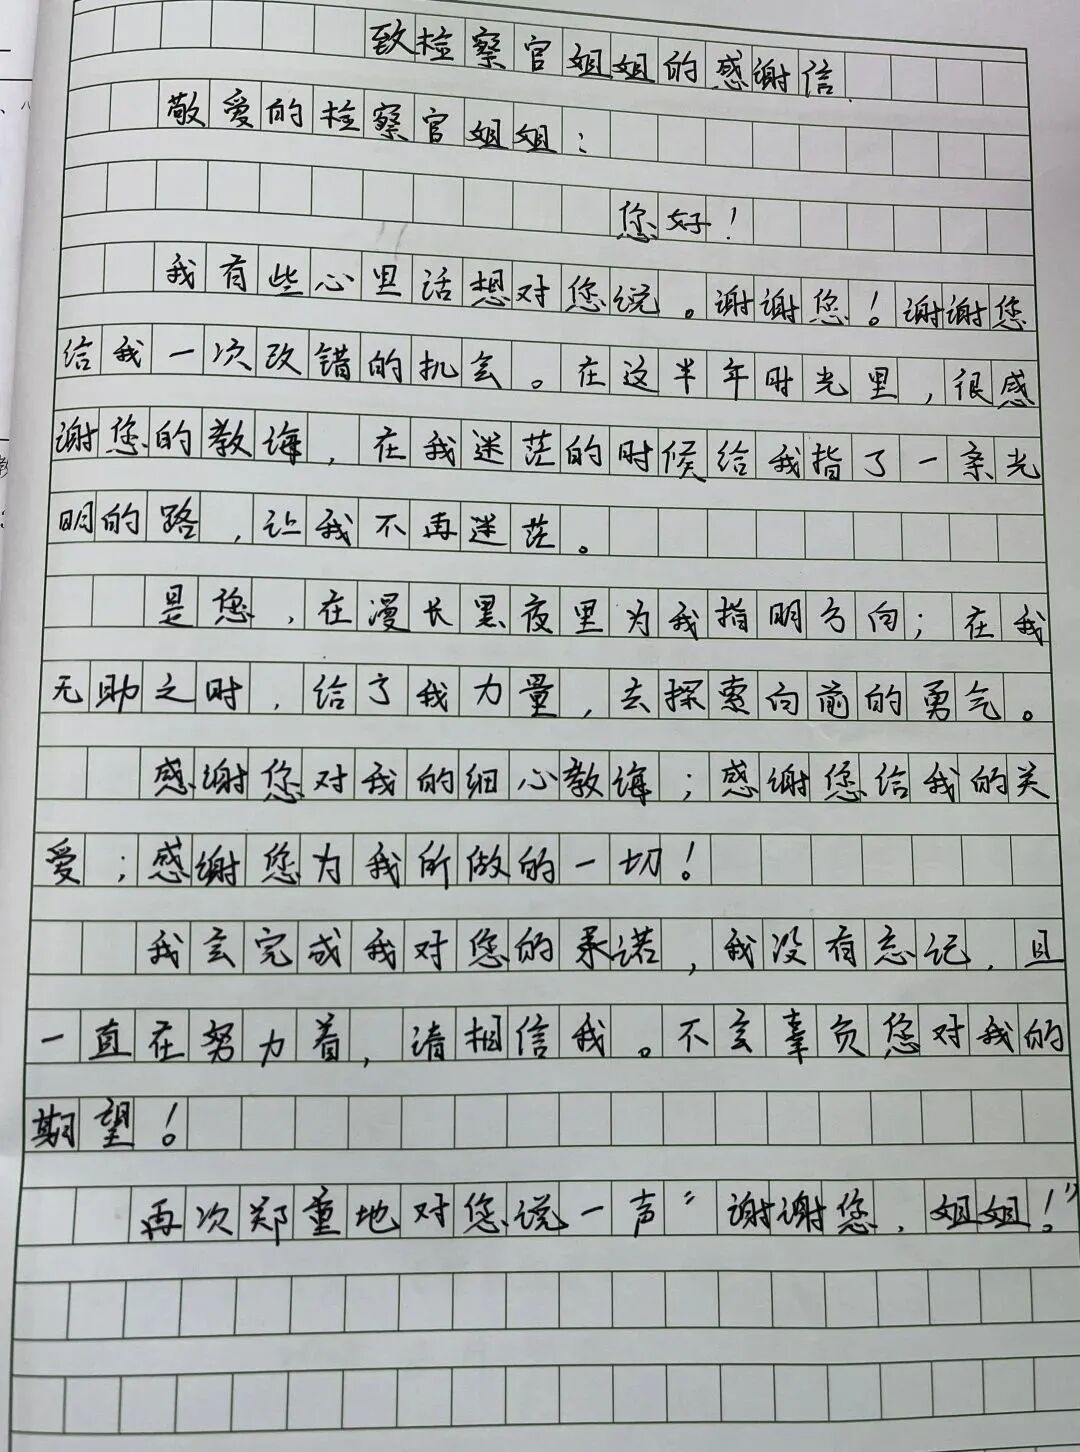 致检察官姐姐的感谢信
敬爱的检察官姐姐：
您好！
我有些心里话想对您说。谢谢您！谢谢您
给我一次改错的机会。在这半年时光里，很感
谢您的教诲，在我迷茫的时候给我指了一条光
明的路，让我不再迷茫。
是您，在漫长黑夜里为我指明方向；在我
无助之时，给了我力量，去探索向前的勇气。
感谢您对我的细心教诲；感谢您给我的关
爱；感谢您为我所做的一切！
我会完成我对您的承诺，我没有忘记，且
一直在努力着，请相信我。不会辜负您对我的
期望！
再次郑重地对您说一声“谢谢您，姐姐！”